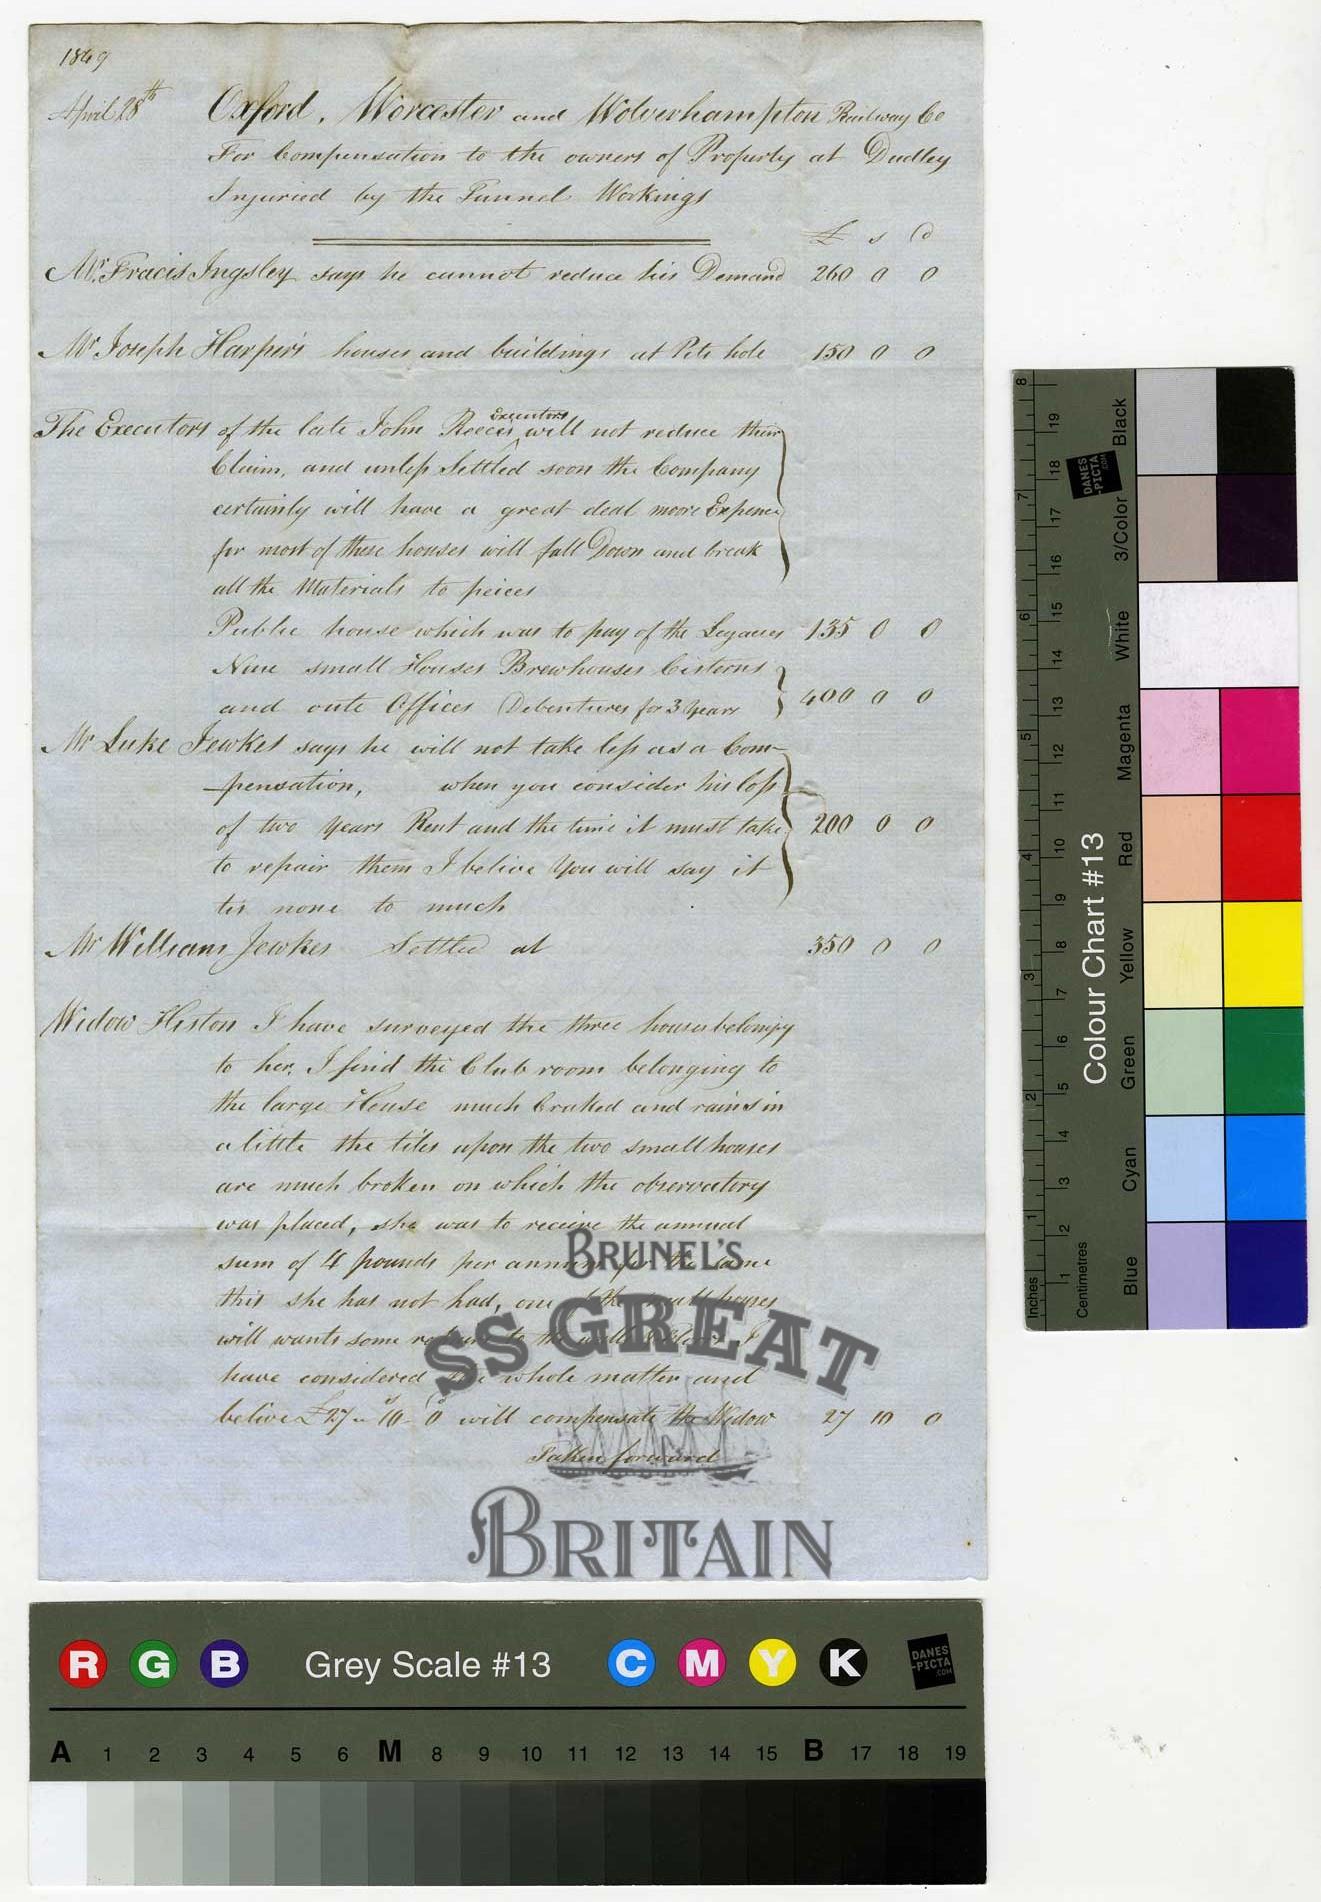 1849
April 28th Oxford, Worcester and Wolverhampton Railway Co
For Compensation to the owners of Property at Dudley
Injuried by the Tunnel Workings
£ s d
Mr. Fracis Ingsley says he cannot reduce his Demand 260 0 0
Mr Joseph Harper's houses and buildings at Pits hole 150 0 0
executors
The Executors of the late John Reeces will not reduce their
Claim, and unless Settled soon the Company
certainly will have a great deal more Expence
for most of these houses will fall Down and break
all the Materials to peices
Public house which was to pay of the Legacies 135 0 0
Nine small Houses Brewhouses Cisterns
and oute Offices Debentures for 3 Years 400 0 0
Mr Luke Jewkes says he will not take less as a Com-
-pensation, when you consider his loss
of two Years Rent and the time it must take 200 0 0
to repair them I belive You will say it
tis none to much
Mr William Jewkes Settled at 350 0 0
Widow Histon I have surveyed the three houses belongy
to her. I find the Club room belonging to
the large House much Craked and rains in
a little the tiles upon the two small houses
are much broken on which the observatory
was placed, she was to receive the annual
sum of 4 pounds per annum for the same
this she has not had, one of the small houses
will wants some repairs to the I
have considered the whole matter and
belive £27 " 10 - 0 will compensate the Widow 27 10 0
Taken forward
BRUNEL'S
SS GREAT
BRITAIN
Colour Chart #13
Blue Cyan Green Yellow Red Magenta White 3/Color Black
Inches 1 2 3 4 5 6 7 8
Centimetres 1 2 3 4 5 6 7 8 9 10 11 12 13 14 15 16 17 18 19
DANES
-PICTA
.COM
R G B Grey Scale #13 C M Y K
DANES
-PICTA
.COM
A 1 2 3 4 5 6 M 8 9 10 11 12 13 14 15 B 17 18 19